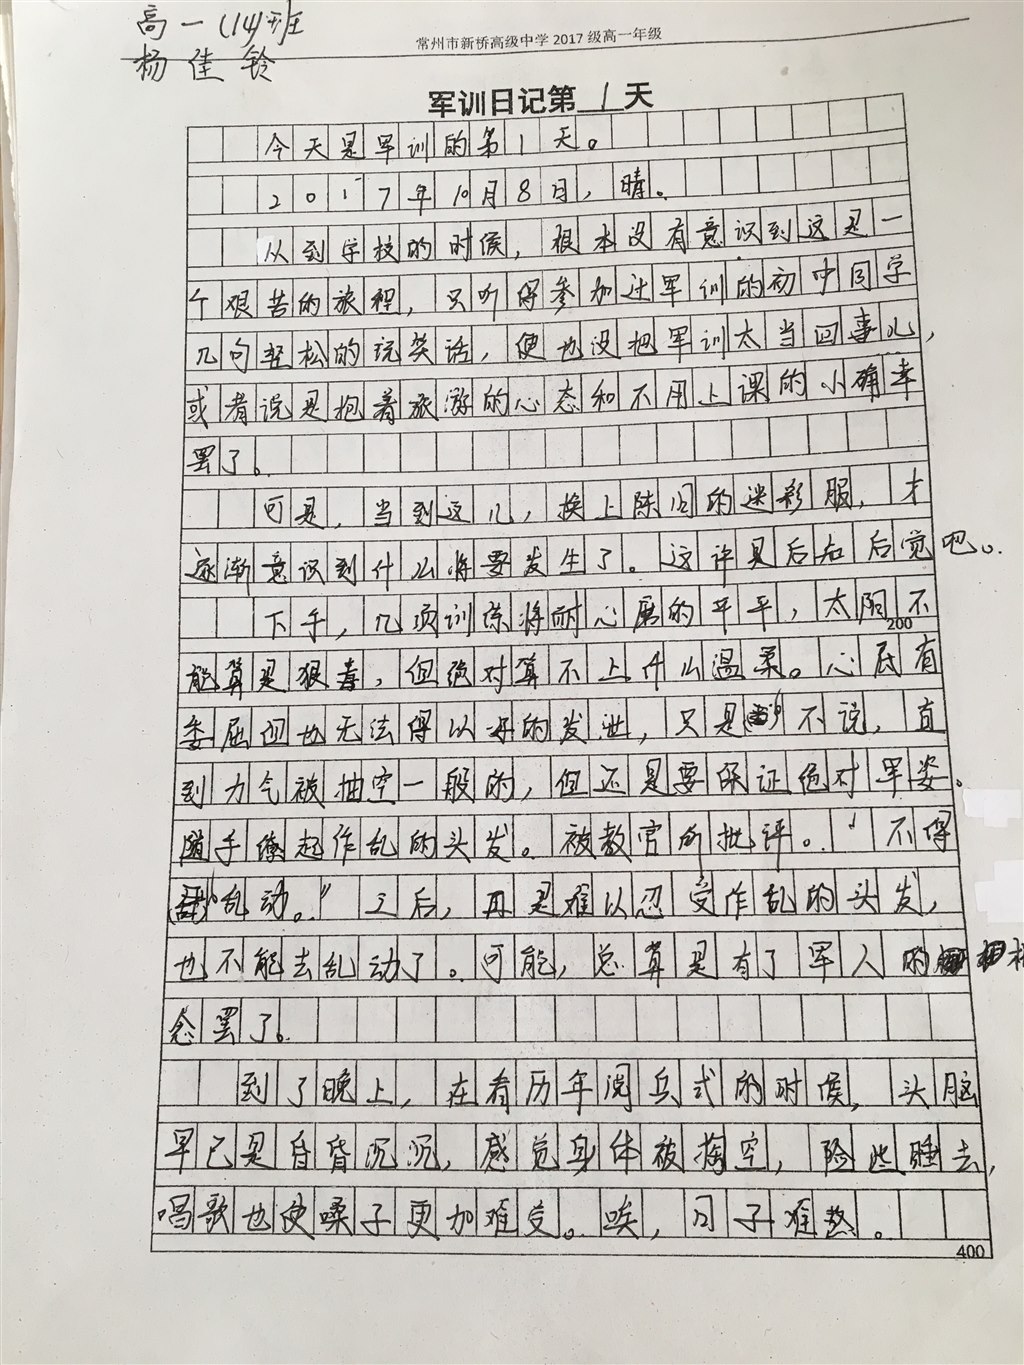 高一(14)班
杨佳铃
常州市新桥高级中学2017级高一年级
军训日记第1天
今天是军训的第1天。
2017年10月8日，晴。
从到学校的时候，根本没有意识到这是一
个艰苦的旅程，只听得参加过军训的初中同学
几句轻松的玩笑话，便也没把军训太当回事儿，
或者说是抱着旅游的心态和不用上课的小确幸
罢了。
可是，当到这儿，换上陈旧的迷彩服，才
逐渐意识到什么将要发生了。这许是后知后觉吧。
下午，几项训练将耐心磨的平平，太阳不
200
能算是狠毒，但绝对算不上什么温柔。心底有
委屈但也无法得以好的发泄，只是不说，直
到力气被抽空一般的，但还是要保证绝对军姿。
随手撩起作乱的头发。被教官所批评。“不得
乱动。”之后，再是难以忍受作乱的头发，
也不能去乱动了。可能，总算是有了军人的
念罢了。
到了晚上，在看历年阅兵式的时候，头脑
早已是昏昏沉沉，感觉身体被掏空，险些睡去，
唱歌也使嗓子更加难受。唉，日子难熬。
400